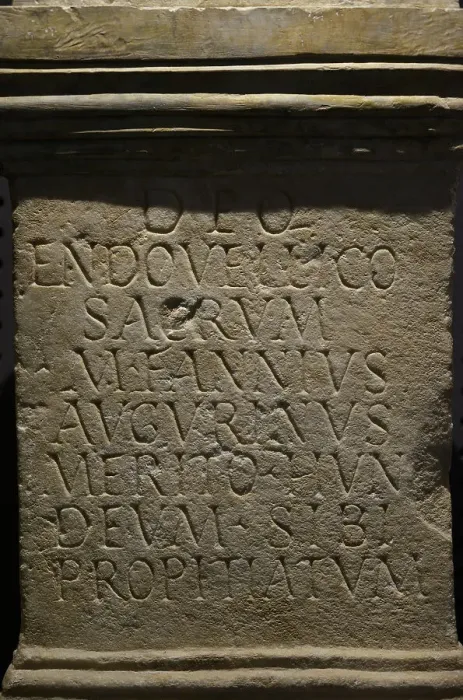 DEO
ENDOVELLICO
SACRVM
M·FANNIVS
AVGVRINVS
MERITO·HVN
DEVM·SIBI
PROPITIATVM